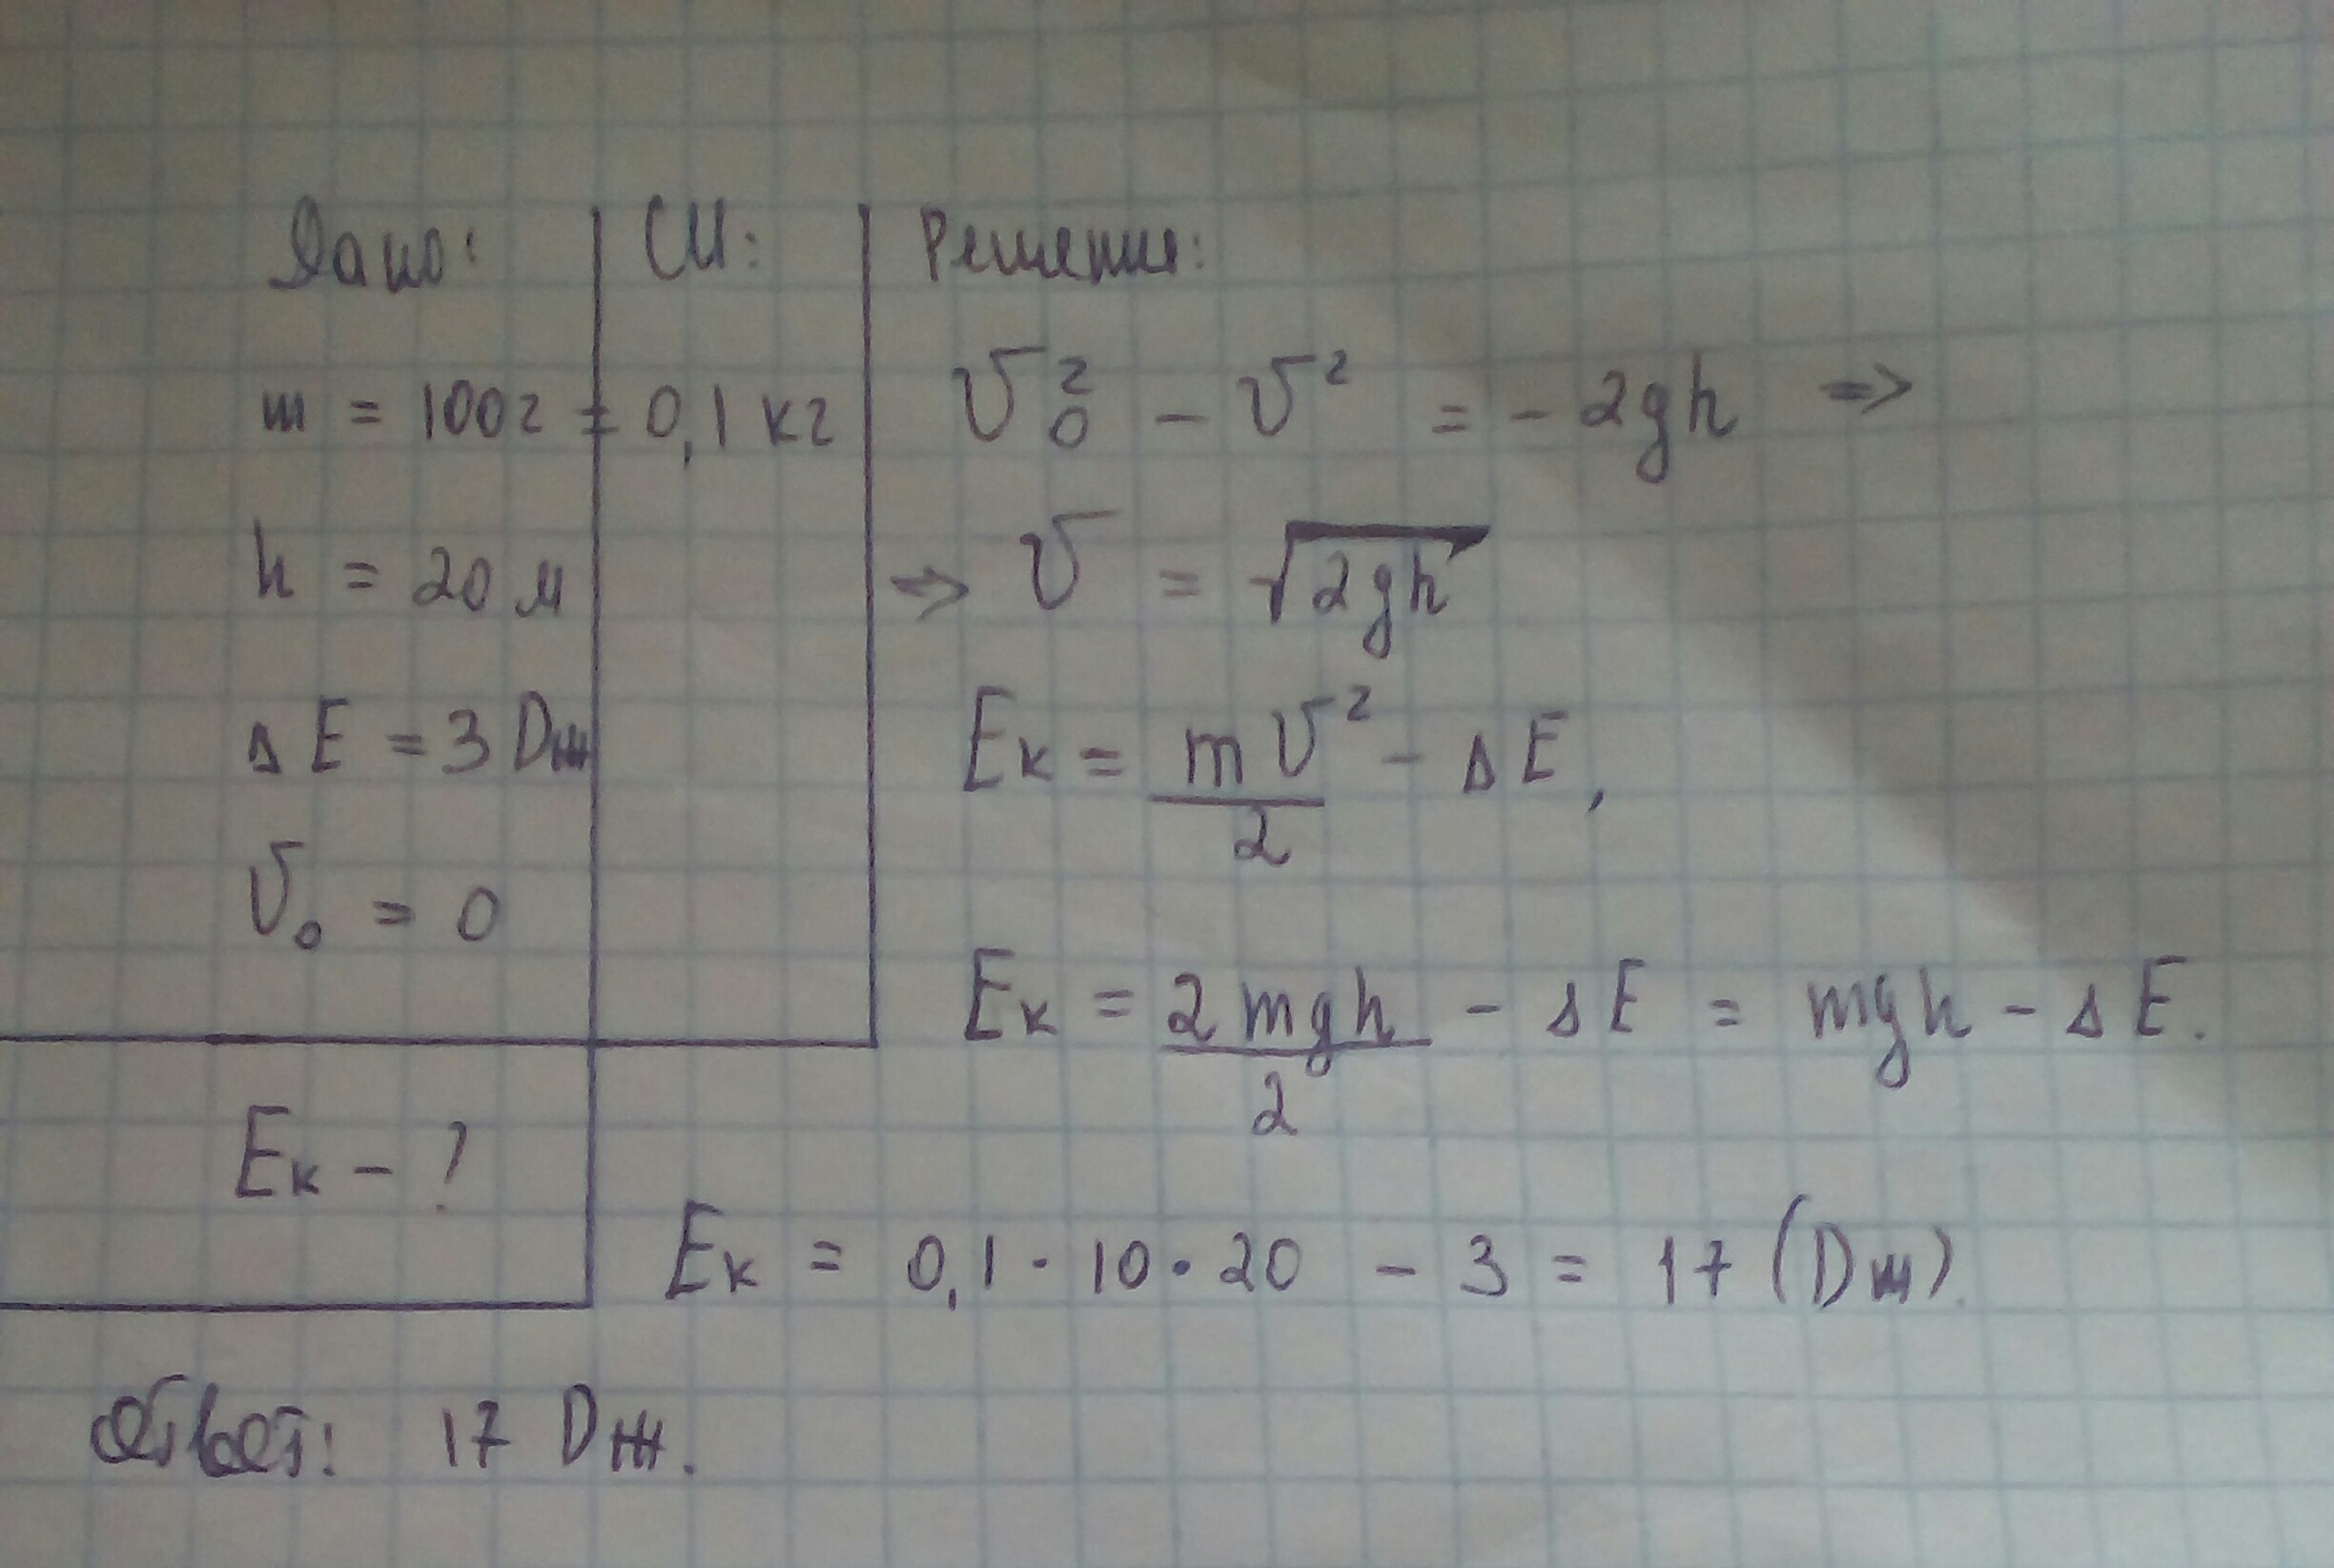 Дано:
m = 100г = 0,1 кг
h = 20 м
ΔE = 3 Dж
υ₀ = 0
Eк - ?
СИ:
Решение:
υ₀² - υ² = - 2gh ⇒
⇒ υ = √2gh
Eк = mυ²/2 - ΔE,
Eк = 2mgh/2 - ΔE = mgh - ΔE.
Eк = 0,1 · 10 · 20 - 3 = 17 (Dж).
Ответ: 17 Dж.